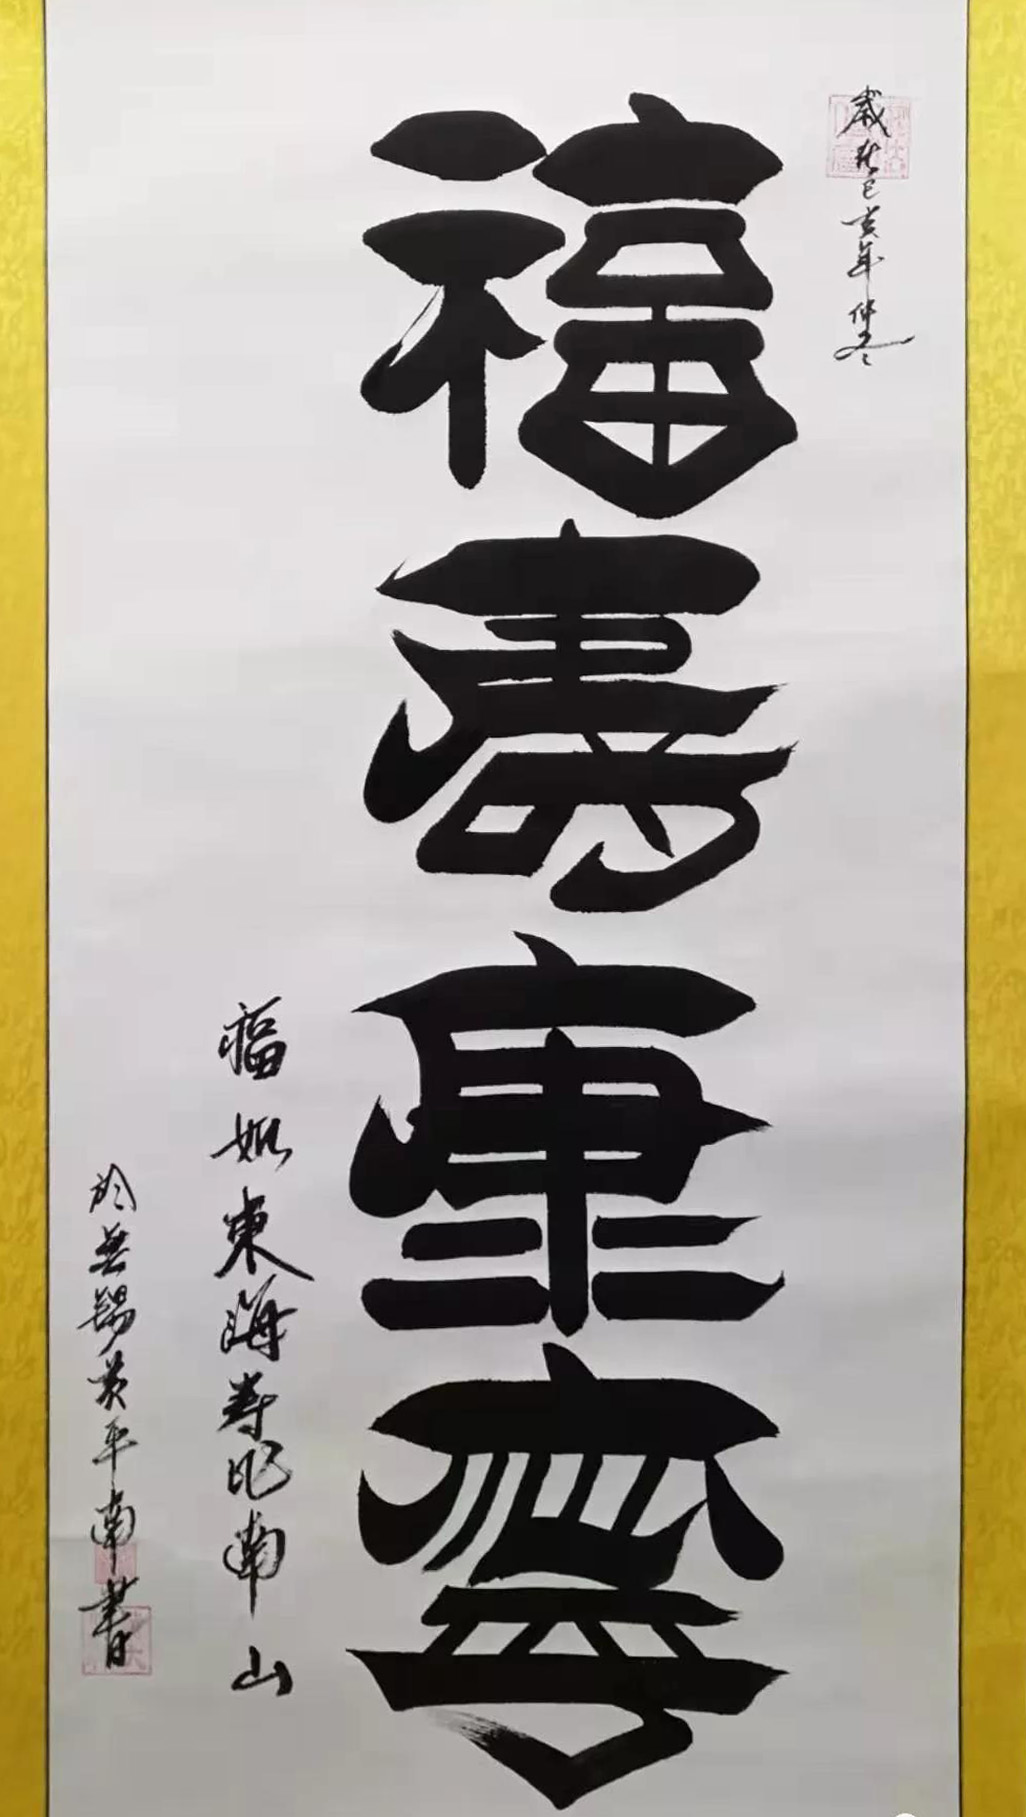 歲秋己亥年仲冬
福壽康寧
福如東海壽比南山
於無錫黄平南書